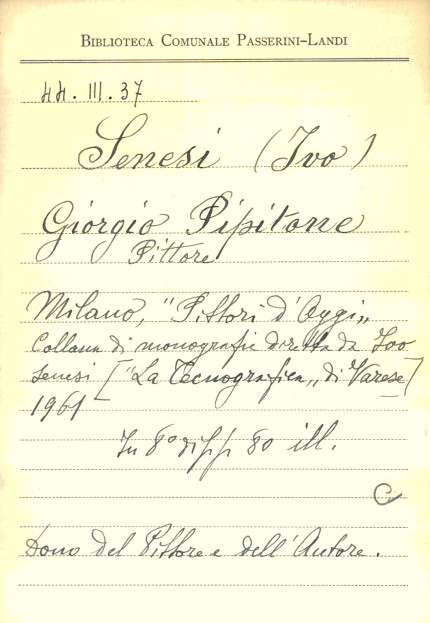 BIBLIOTECA COMUNALE PASSERINI-LANDI
44. III. 37
Senesi (Ivo)
Giorgio Pipitone
Pittore
Milano, "Pittori d'Oggi„
Collana di monografie diretta da Ivo
Senesi ["La Tecnografica„ di Varese]
1961
In 8° di pp 80 ill.
C
Dono del Pittore e dell'Autore.